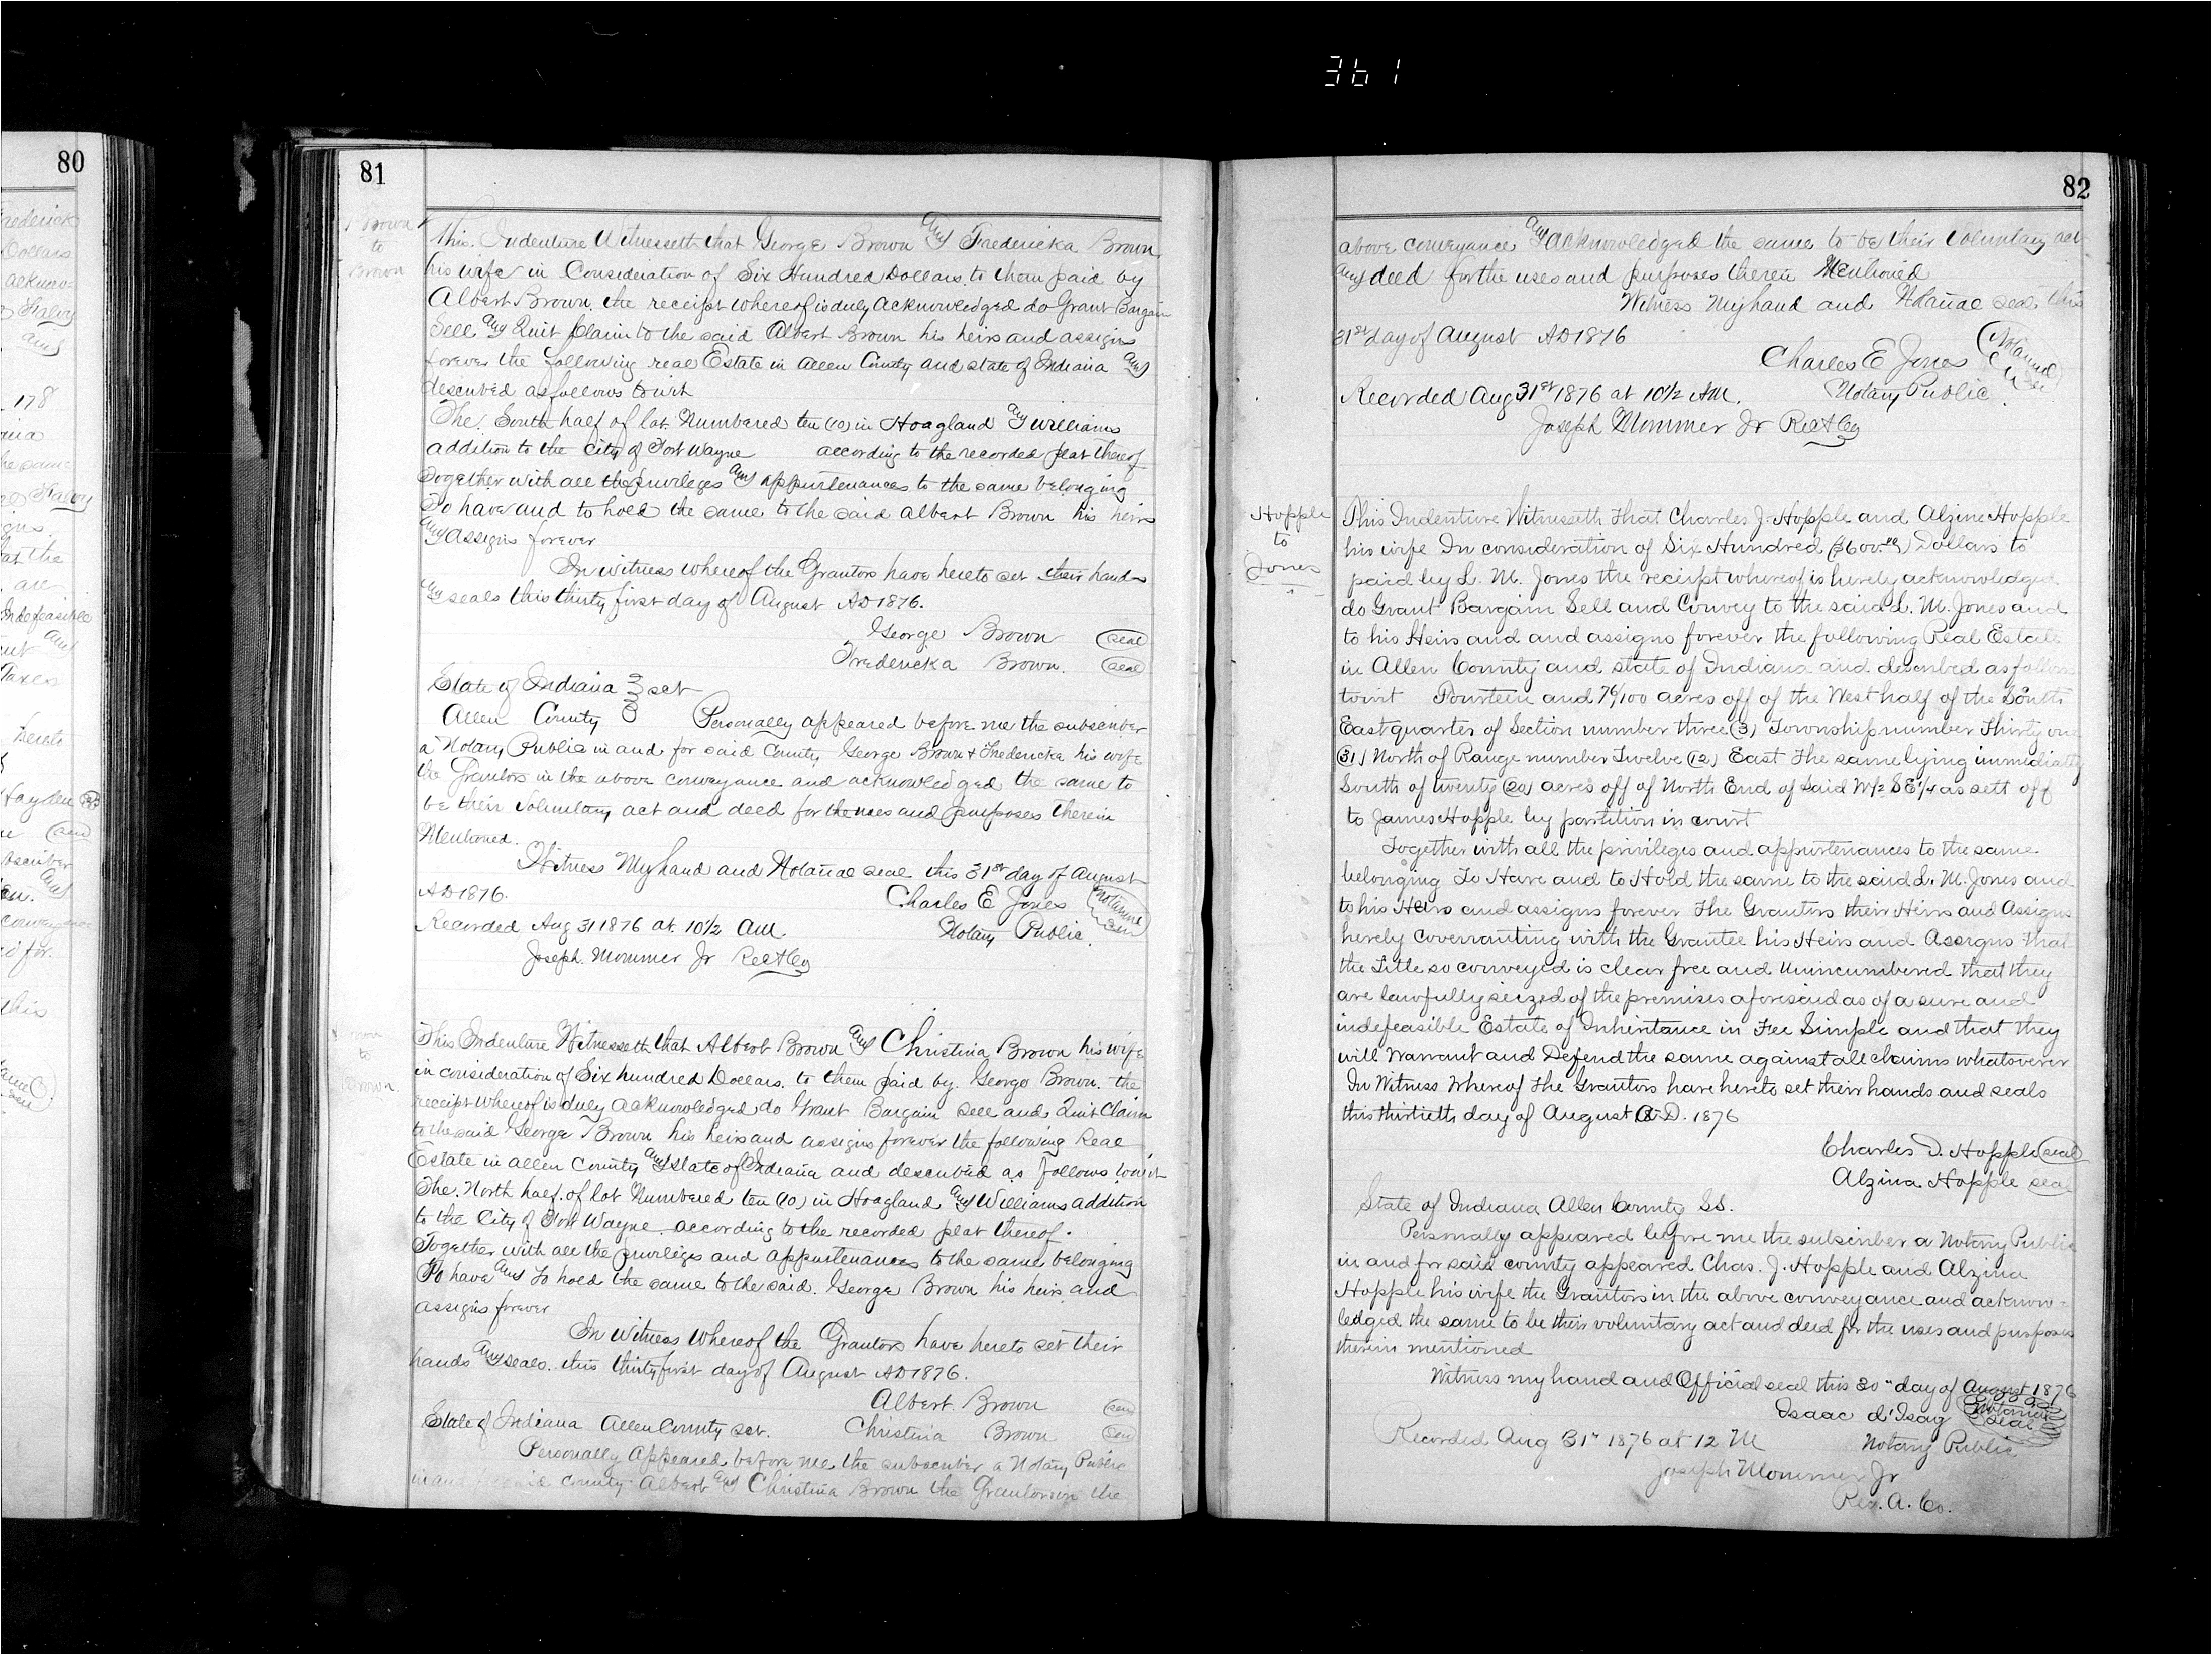 361
80
Frederick
Dollars
acknow=
and
178
the same
at the
are
Indefeasible
and
Taxes
Hayden
conveyance
this
81
Brown
to
Brown
This Indenture Witnesseth that George Brown and Fredericka Brown
his wife in Consideration of Six Hundred Dollars to them paid by
Albert Brown the receipt whereof is duly acknowledged do Grant Bargain
Sell and Quit Claim to the said Albert Brown his heirs and assigns
forever the following real Estate in Allen County and state of Indiana and
described as follows towit
The South half of lot Numbered ten (10) in Hoagland and Williams
addition to the City of Fort Wayne according to the recorded plat thereof
Together with all the privileges and appurtenances to the same belonging
To have and to hold the same to the said Albert Brown his heirs
and assigns forever
In witness whereof the Grantors have hereto set their hands
and seals this thirty first day of August AD 1876.
George Brown (seal)
Fredericka Brown. (seal)
State of Indiana } sct
Allen County } Personally appeared before me the subscriber
a Notary Public in and for said County George Brown & Fredericka his wife
the Grantors in the above conveyance and acknowledged the same to
be their Voluntary act and deed for the uses and purposes therein
Mentioned.
Witness My hand and Notarial seal this 31st day of August
AD 1876. Charles E Jones (Notarial Seal)
Recorded Aug 31 1876 at 10 1/2 AM. Notary Public.
Joseph Mommer Jr RecACo
Brown
to
Brown
This Indenture Witnesseth that Albert Brown and Christina Brown his wife
in consideration of Six hundred Dollars to them paid by George Brown. the
receipt whereof is duly acknowledged do Grant Bargain sell and Quit Claim
to the said George Brown his heirs and assigns forever the following Real
Estate in Allen County and State of Indiana and described as follows towit
The North half of lot Numbered ten (10) in Hoagland and Williams addition
to the City of Fort Wayne according to the recorded plat thereof.
Together with all the privileges and appurtenances to the same belonging
To have and to hold the same to the said George Brown his heirs and
assigns forever
In witness whereof the Grantors have hereto set their
hands and seals this thirty first day of August AD 1876.
Albert Brown (seal)
State of Indiana Allen County sct. Christina Brown (seal)
Personally Appeared before me the subscriber a Notary Public
in and for said County Albert and Christina Brown the Grantors in the
82
above conveyance and acknowledged the same to be their Voluntary act
and deed for the uses and purposes therein Mentioned
Witness My hand and Notarial seal this
31st day of August AD 1876
Charles E Jones (Notarial Seal)
Recorded Aug 31st 1876 at 10 1/2 AM. Notary Public.
Joseph Mommer Jr RecACo
Hopple
to
Jones
This Indenture Witnesseth That Charles J. Hopple and Alzine Hopple
his wife In consideration of Six Hundred ($600.00) Dollars to
paid by L. M. Jones the receipt whereof is hereby acknowledged
do Grant Bargain Sell and Convey to the said L. M. Jones and
to his Heirs and and assigns forever the following Real Estate
in Allen County and state of Indiana and described as follows
towit Fourteen and 76/100 acres off of the West half of the South
East quarter of Section number three (3) Township number Thirty one
(31) North of Range number Twelve (12) East The same lying immediatly
South of twenty (20) acres off of North End of Said W 1/2 SE 1/4 as sett off
to James Hopple by partition in court
Together with all the privileges and appurtenances to the same
belonging To Have and to Hold the same to the said L. M. Jones and
to his Heirs and assigns forever The Grantors their Heirs and Assigns
hereby covenanting with the Grantee his Heirs and Assigns that
the Title so conveyed is clear free and Unincumbered that they
are lawfully seized of the premises aforesaid as of a sure and
indefeasible Estate of Inheritance in Fee Simple and that they
will Warrant and Defend the same against all claims whatsoever
In Witness Whereof The Grantors have hereto set their hands and seals
this thirtieth day of August A.D. 1876
Charles D. Hopple (seal)
Alzina Hopple seal
State of Indiana Allen County SS.
Personally appeared before me the subscriber a Notary Public
in and for said county appeared Chas. J. Hopple and Alzina
Hopple his wife the Grantors in the above conveyance and acknow=
ledged the same to be their voluntary act and deed for the uses and purposes
therein mentioned
Witness my hand and Official seal this 30" day of August 1876
Isaac d'Isay (Notarial Seal)
Recorded Aug 31" 1876 at 12 M Notary Public
Joseph Mommer Jr
Rec. A. Co.